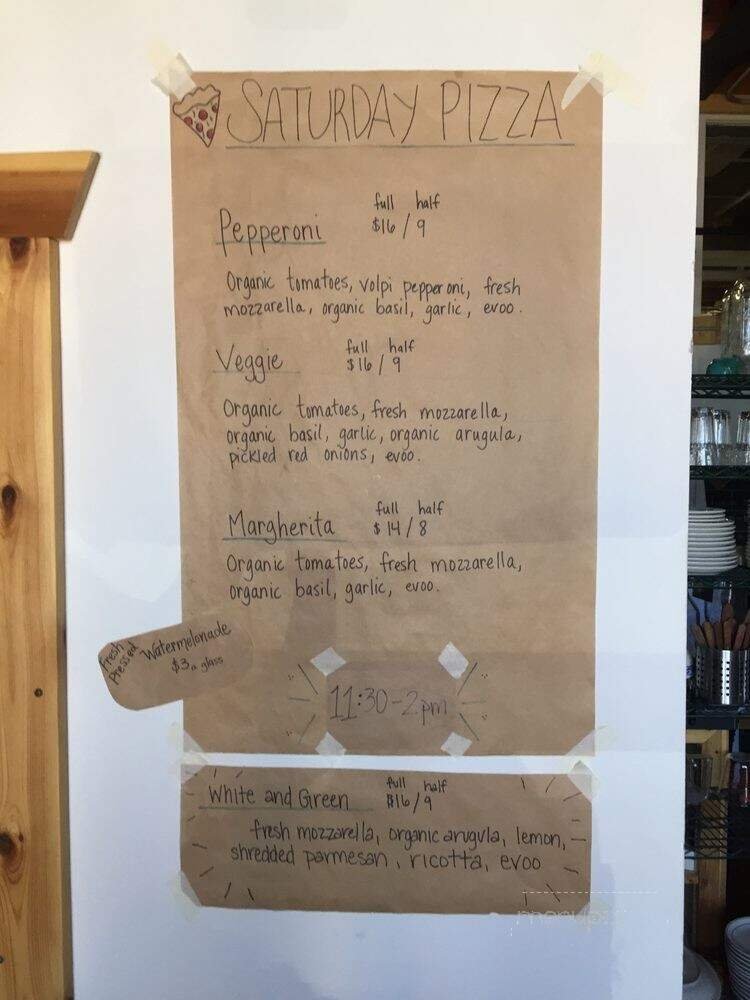 SATURDAY PIZZA
full half
Pepperoni $16 / 9
Organic tomatoes, volpi pepperoni, fresh
mozzarella, organic basil, garlic, evoo.
full half
Veggie $16 / 9
Organic tomatoes, fresh mozzarella,
organic basil, garlic, organic arugula,
pickled red onions, evoo.
full half
Margherita $14 / 8
Organic tomatoes, fresh mozzarella,
organic basil, garlic, evoo.
Fresh
Pressed
Watermelonade
$3 a glass
11:30-2pm
full half
White and Green $16/9
fresh mozzarella, organic arugula, lemon,
shredded parmesan, ricotta, evoo